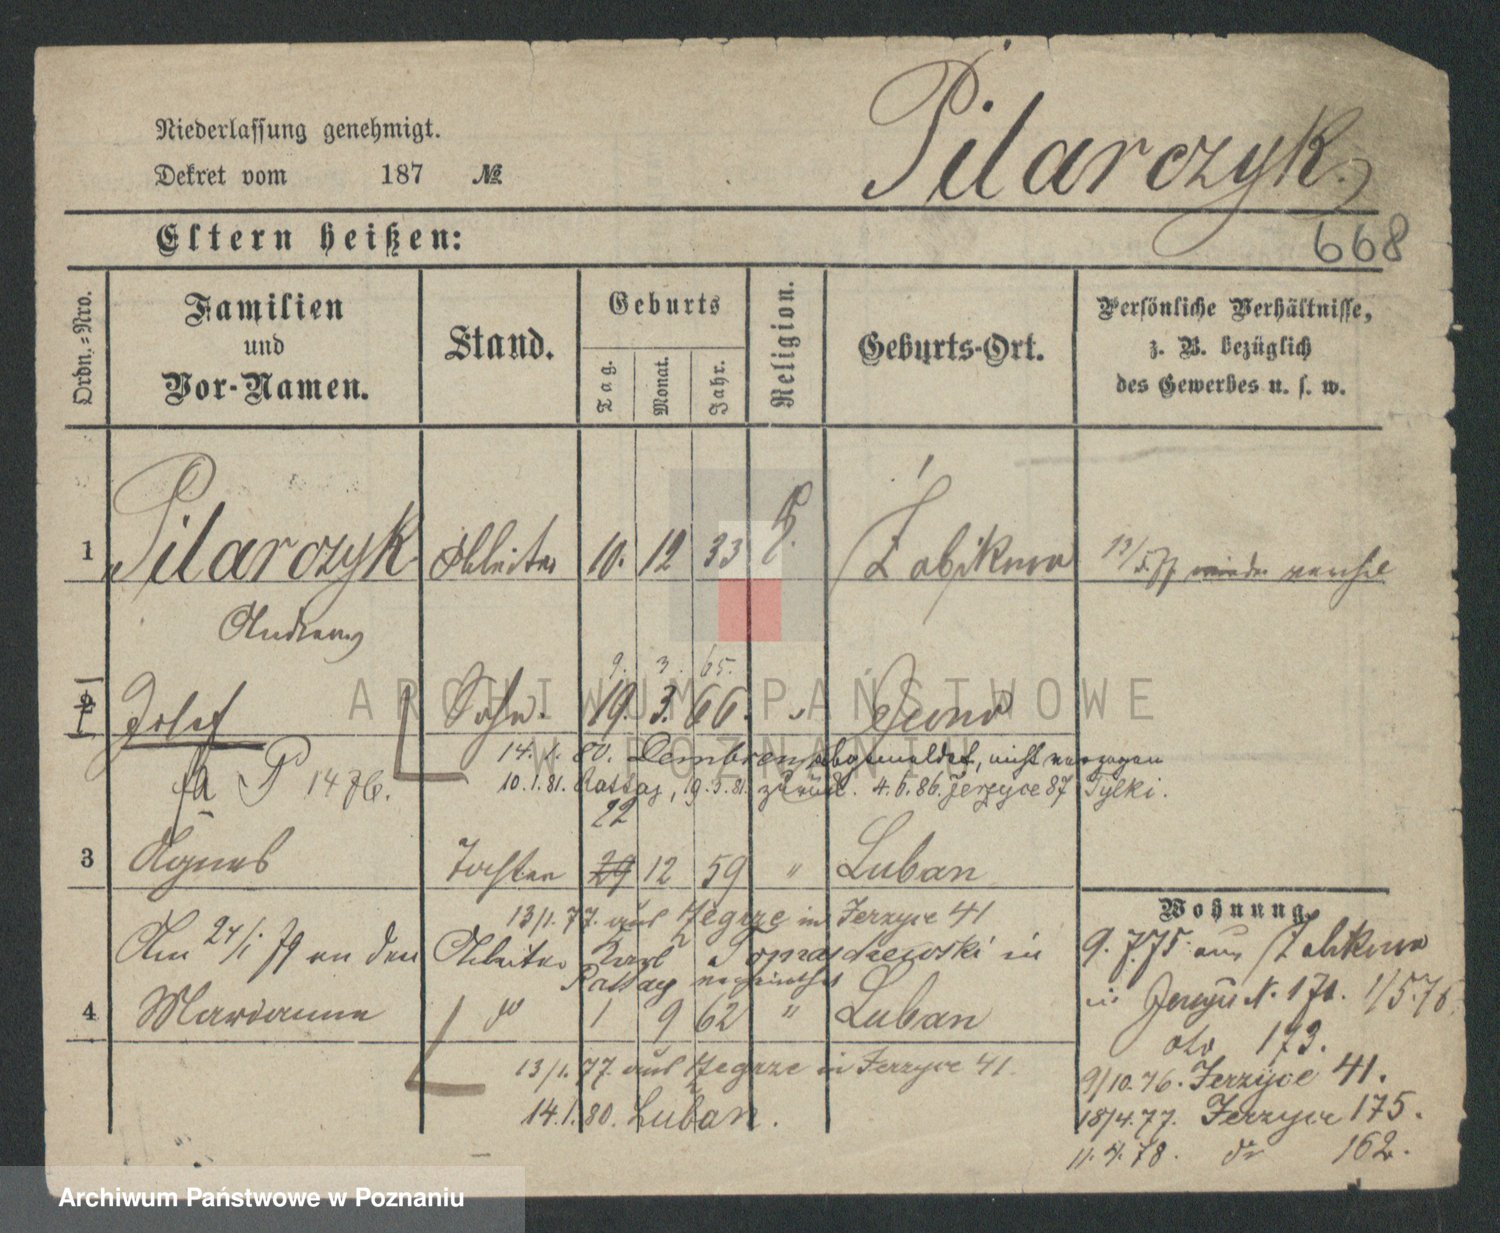 Niederlassung genehmigt.
Dekret vom 187 №
Pilarczyk
668
Eltern heißen:
Ordn.-Nro.
Familien und Vor-Namen.
Stand.
Geburts
Tag.
Monat.
Jahr.
Religion.
Geburts-Ort.
Persönliche Verhältnisse,
z. B. bezüglich
des Gewerbes u. s. w.
1 Pilarczyk Arbeiter 10. 12 33 Żabikowo
Andreas
9. 3. 65.
2 Josef Sohn. 19. 3. 66. "
14. 1. 80. abgemeldet, nicht verzogen
10.1.81. Rattay, 19.5.81. zurück. 4.6.86. Jerzyce 87 Tylki.
22
3 Agnes Tochter 29 12 59 " Luban
13/1.77. aus Zegrze in Jerzyce 41
Am 24/1 79 an den Arbeiter Karl Tomaschewski in
Rattay verheirathet
4 Marianna do 1 9 62 " Luban
13/1.77. aus Zegrze in Jerzyce 41.
14.1.80. Luban.
Wohnung.
9.7.75. aus Żabikowo
in N. 171. 1/5.76
dto 173.
9/10.76. Jerzyce 41.
18/4.77. Jerzyce 175.
11.4.78. do 162.
ARCHIWUM PAŃSTWOWE
W POZNANIU
Archiwum Państwowe w Poznaniu